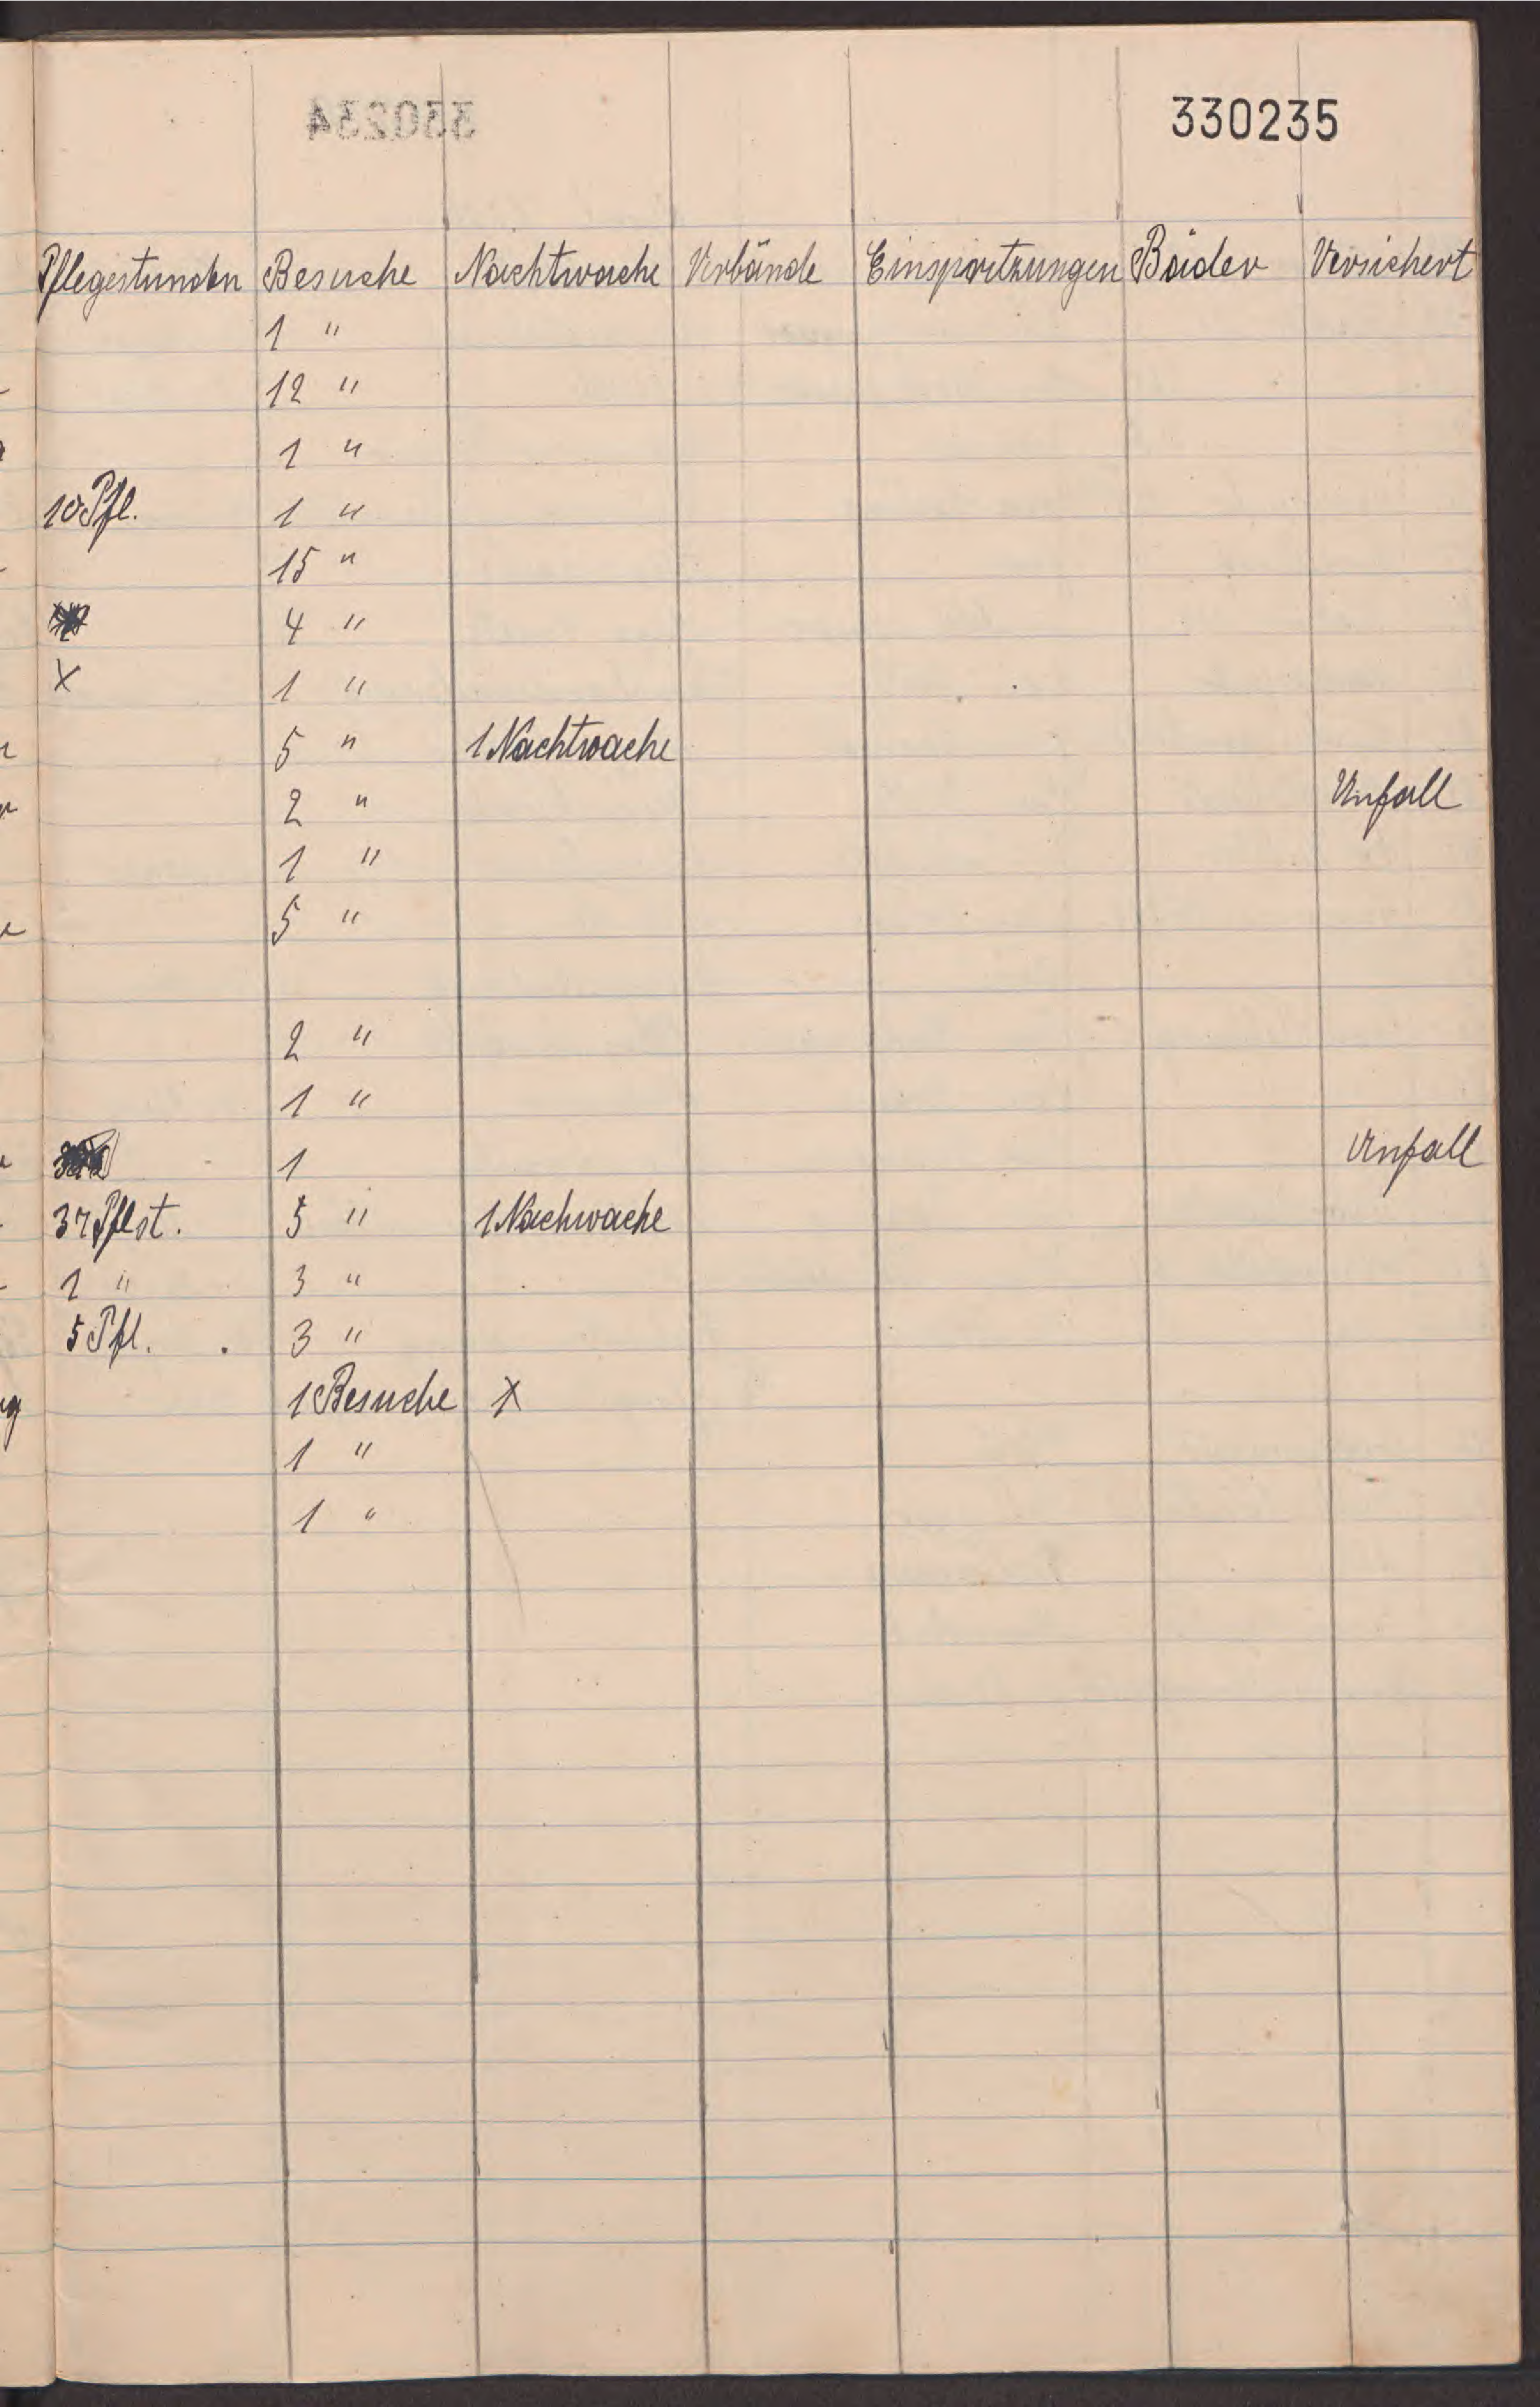 330235
Pflegestunden Besuche Nachtwache Verbände Einspritzungen Bäder Versichert
1 "
12 "
1 "
10 Pfl. 1 "
15 "
4 "
X 1 "
5 " 1 Nachtwache
2 " Unfall
1 "
5 "
2 "
1 "
1 Unfall
37 Pflst. 5 " 1 Nachwache
1 " 3 "
5 Pfl. . 3 "
1 Besuche X
1 "
1 "